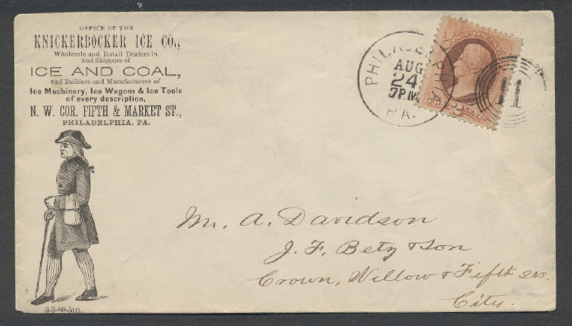 OFFICE OF THE
KNICKERBOCKER ICE CO.,
Wholesale and Retail Dealers in
and Shippers of
ICE AND COAL,
and Builders and Manufacturers of
Ice Machinery, Ice Wagons & Ice Tools
of every description,
N. W. COR. FIFTH & MARKET ST.,
PHILADELPHIA, PA.
PHILADELPHIA
AUG
24
7 PM
PA.
11
Mr. A. Davidson
J. F. Betz & Son
Crown, Willow & Fifth Sts.
City.
3-3-80-5m.